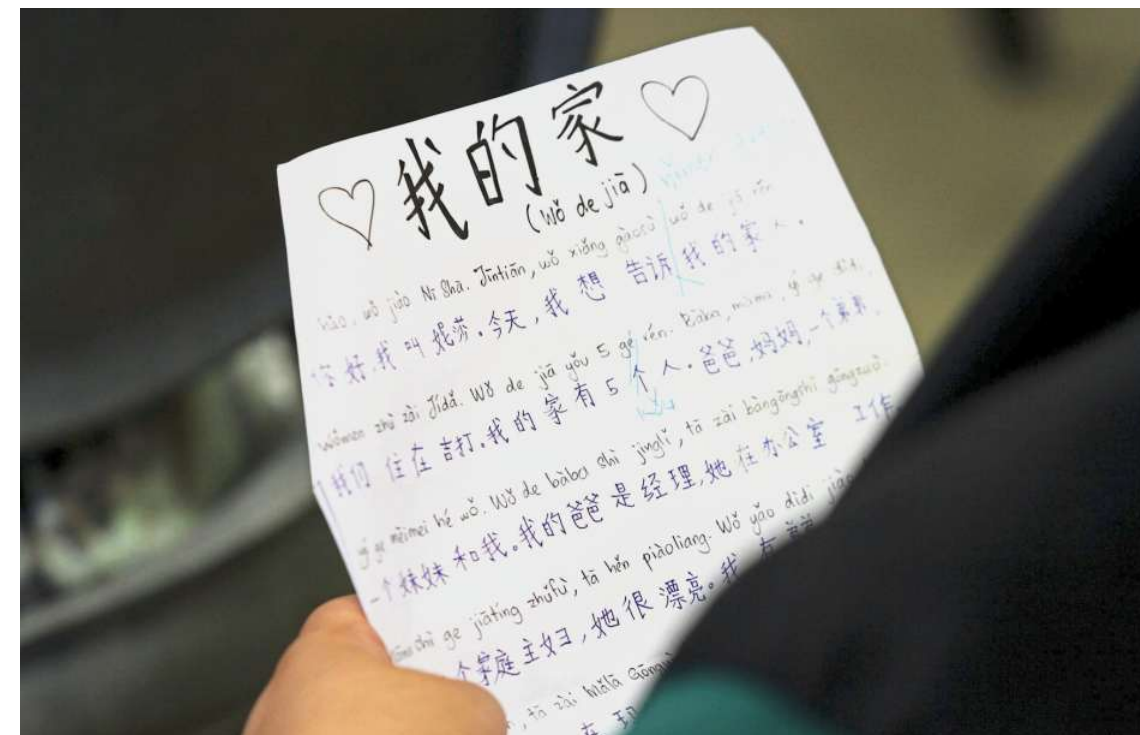 我的家
(Wǒ de jiā)
hǎo, wǒ jiào Ní Shā. Jīntiān, wǒ xiǎng gàosù wǒ de jiā rén
你好,我叫妮莎。今天,我想告诉我的家人。
Wǒmen zhù zài Jídǎ. Wǒ de jiā yǒu 5 gè rén. Bàba, māma, yí ge dìdi,
我们住在吉打。我的家有5个人。爸爸,妈妈,一个弟弟,
yí ge mèimei hé wǒ. Wǒ de bàba shì jīnglǐ, tā zài bàngōngshì gōngzuò.
一个妹妹和我。我的爸爸是经理,她在办公室工作
shì ge jiātíng zhǔfù, tā hěn piàoliang. Wǒ yǒu dìdi jiào
个家庭主妇,她很漂亮。我
tā zài Mǎlā Gōng
在